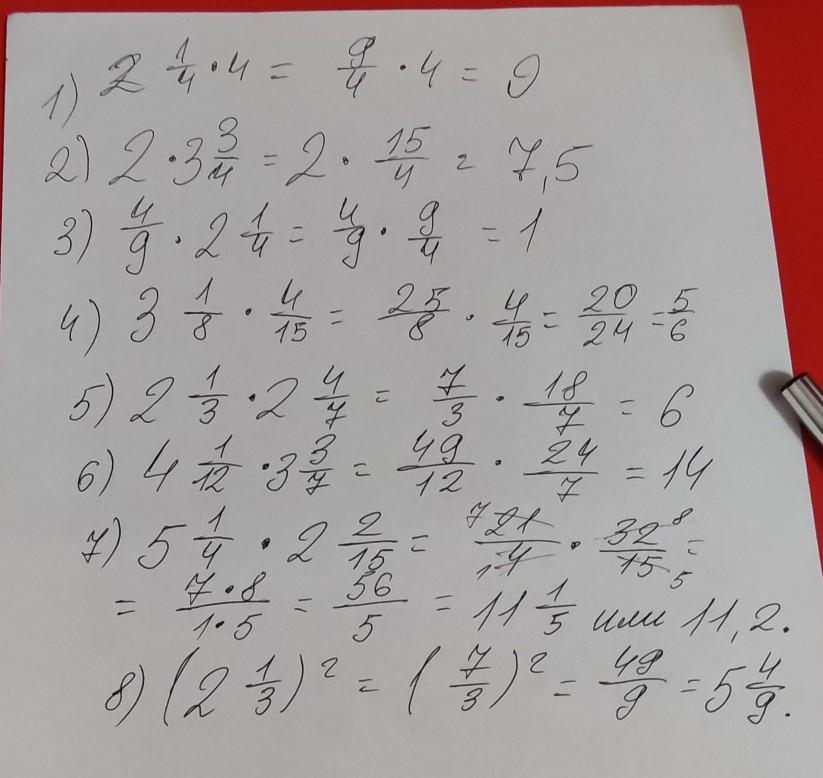 1) 2 1/4 · 4 = 9/4 · 4 = 9
2) 2 · 3 3/4 = 2 · 15/4 = 7,5
3) 4/9 · 2 1/4 = 4/9 · 9/4 = 1
4) 3 1/8 · 4/15 = 25/8 · 4/15 = 20/24 = 5/6
5) 2 1/3 · 2 4/7 = 7/3 · 18/7 = 6
6) 4 1/12 · 3 3/7 = 49/12 · 24/7 = 14
7) 5 1/4 · 2 2/15 = 7 21/1 4 · 32 8/15 5 =
= 7·8/1·5 = 56/5 = 11 1/5 или 11,2.
8) (2 1/3)² = (7/3)² = 49/9 = 5 4/9.